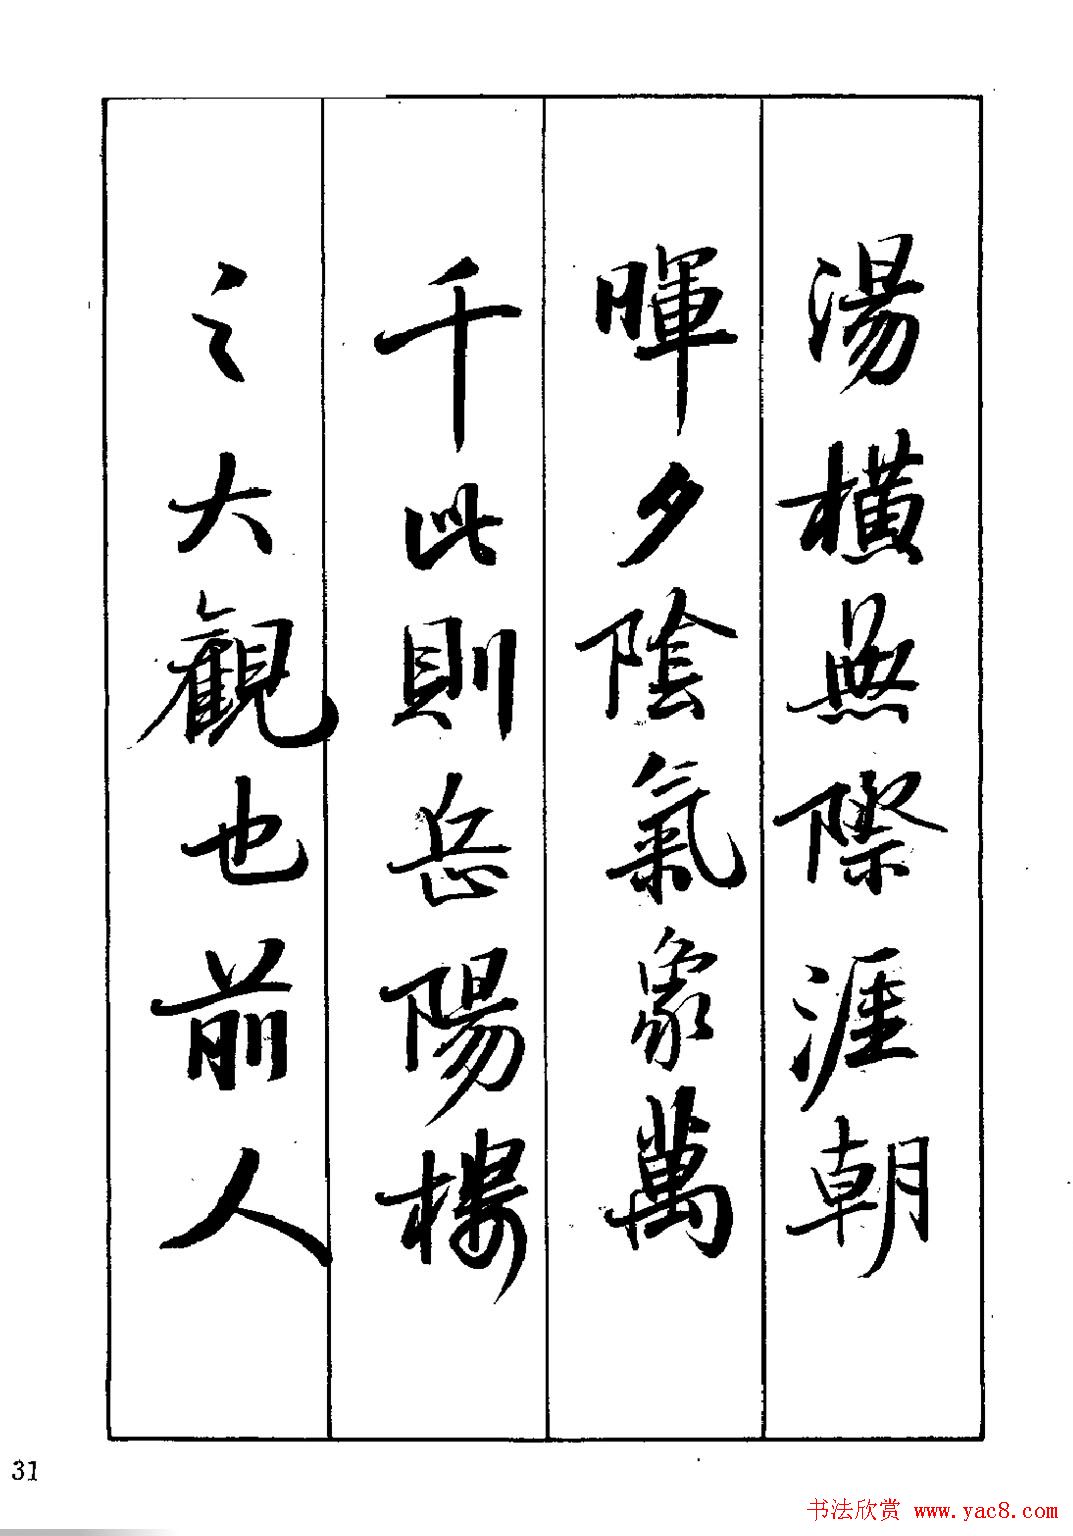 湯橫無際涯朝
暉夕陰氣象萬
千此則岳陽樓
之大觀也前人
31
书法欣赏 www.yac8.com